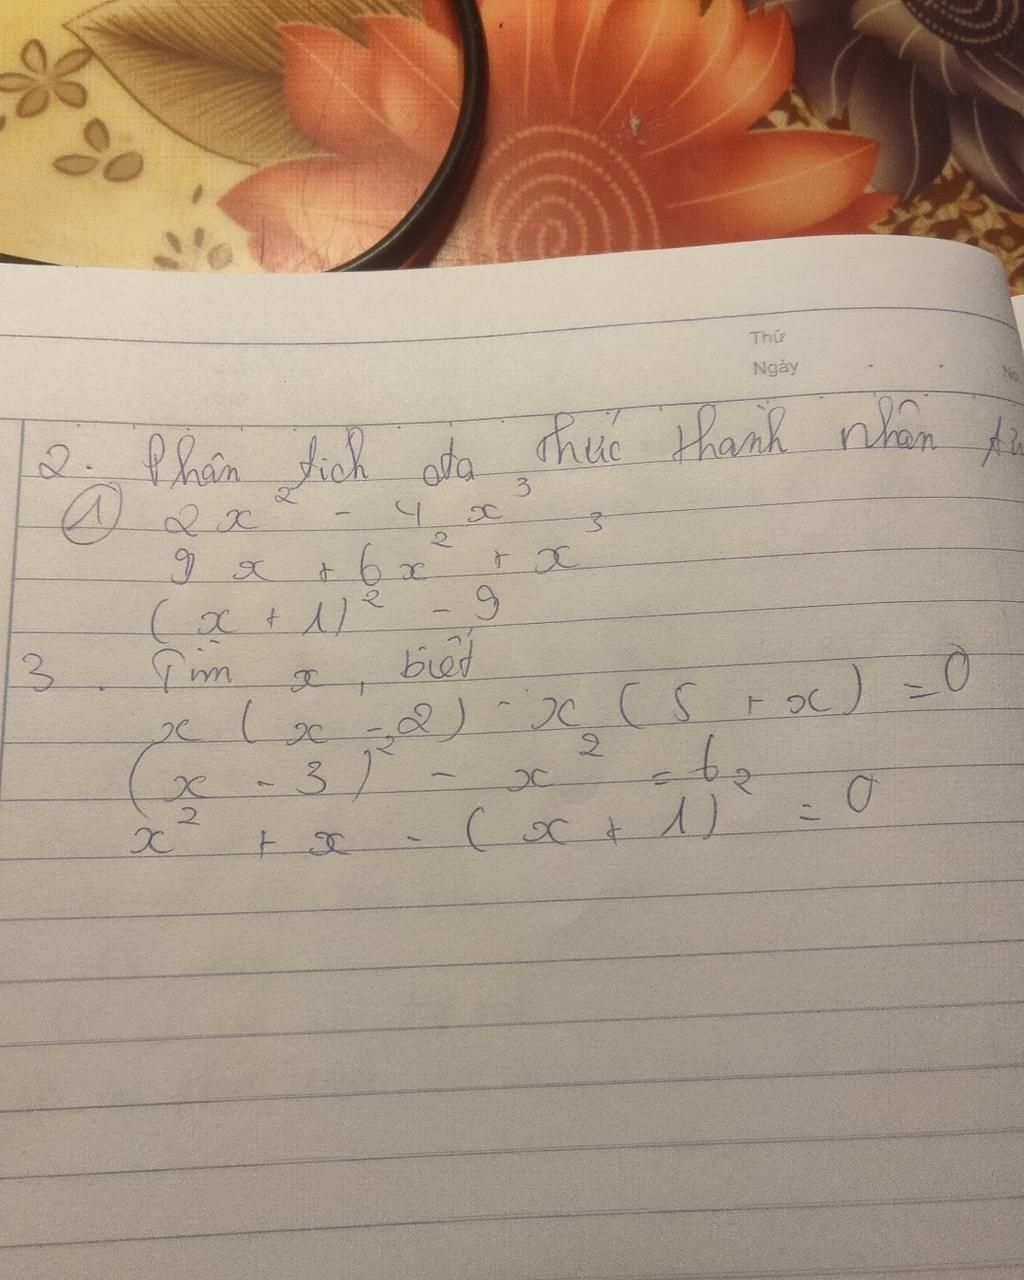 Thứ
Ngày . .
No
2. Phân tích đa thức thành nhân tử
① 2x² - 4x³
9x + 6x² + x³
(x + 1)² - 9
3. Tìm x, biết
x (x - 2) - x (5 + x) = 0
(x - 3)² - x² = 6
x² + x - (x + 1)² = 0